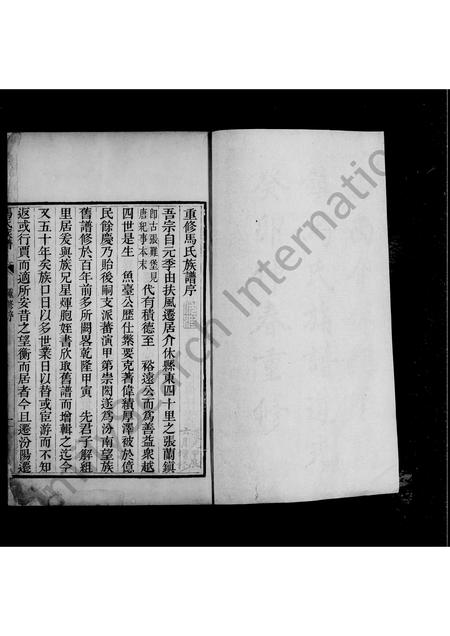 重修馬氏族譜序
吾宗自元季由扶風遷居介休縣東四十里之張蘭鎮
即古張難堡見
唐紀事本末
代有積德至 裕遠公而為善益衆越
四世是生 魚臺公歷仕繁要克著偉績厚澤被於億
民餘慶乃貽後嗣支派蕃演甲第崇閎遂為汾南望族
舊譜修於百年前多所闕畧乾隆甲寅 先君子解組
里居爰與族兄星煇胞姪書欣取舊譜而增輯之迄今
又五十年矣族口日以多世業日以替或宦游而不知
返或行賈而適所安昔之望衡而居者今日遷汾陽遷
Search International